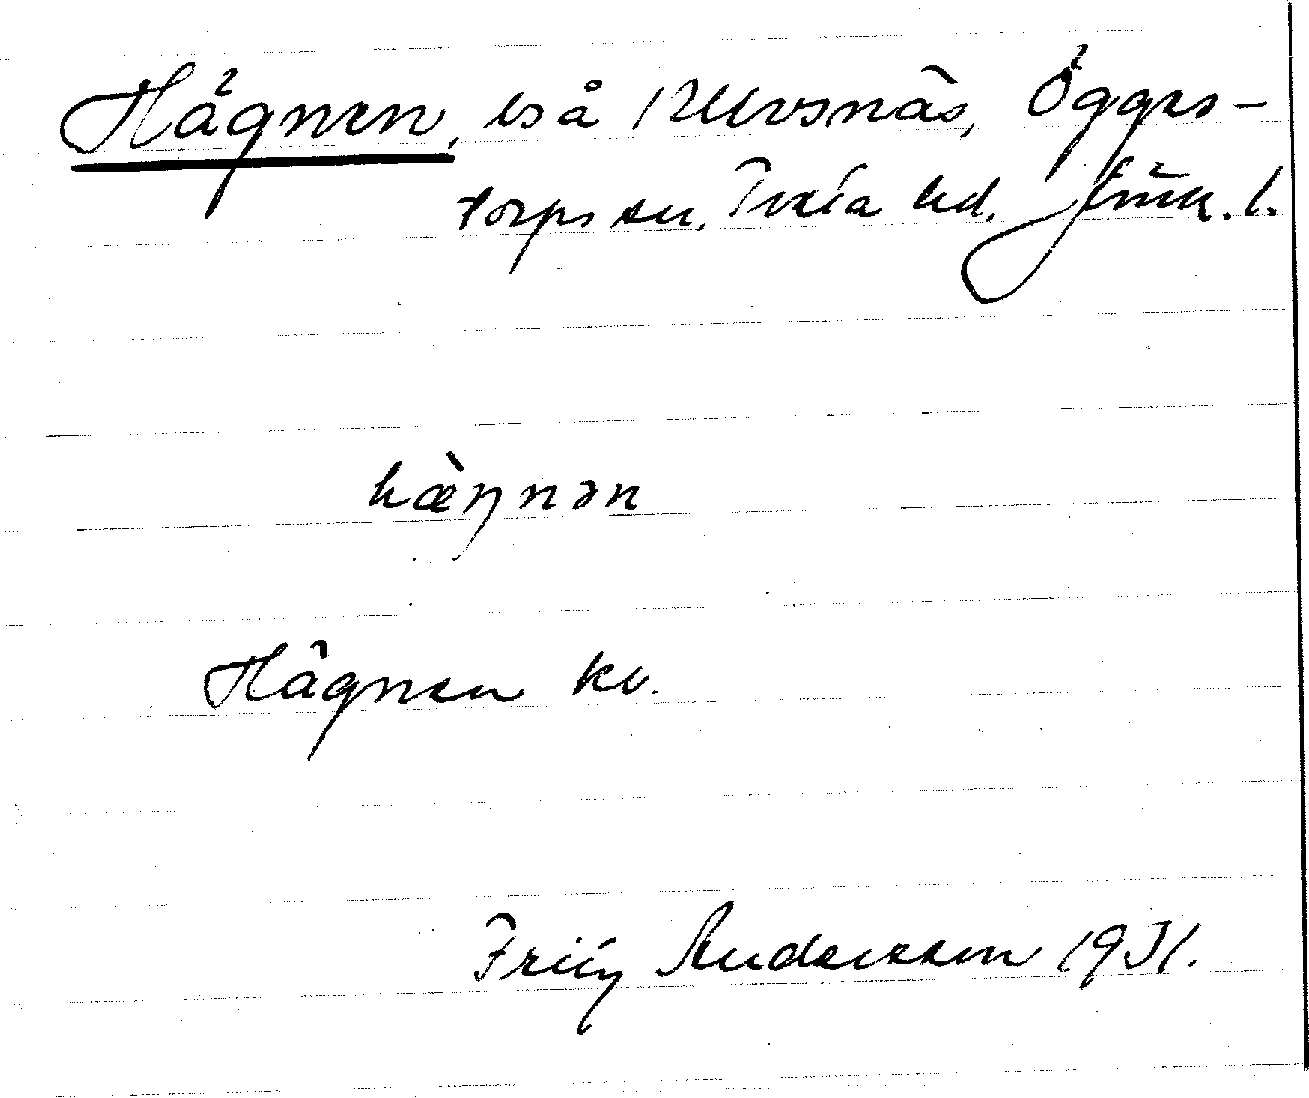 Hägnen, bs å Ulvsnäs, Ögges-
torps sn, Tveta hd. Jönk. l.
hæ̀ŋnən
Hägnen kv.
Fritz Andersson 1931.